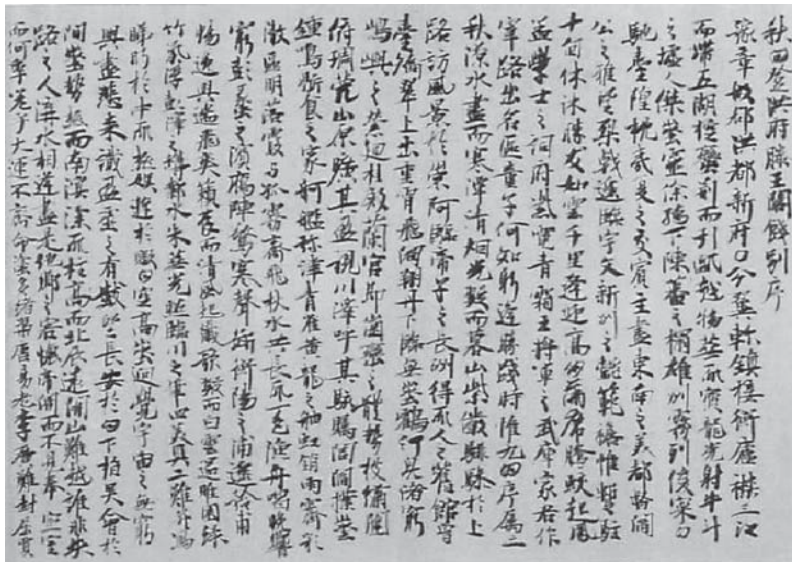 秋日登洪府滕王閣餞別序
豫章故郡洪都新府星分翼軫地接衡廬襟三江
而帶五湖控蠻荊而引甌越物華天寶龍光射牛斗
之墟人傑地靈徐孺下陳蕃之榻雄州霧列俊寀
馳臺隍枕夷夏之交賓主盡東南之美都督閻
公之雅望棨戟遙臨宇文新州之懿範襜帷暫駐
十旬休沐勝友如雲千里逢迎高朋滿席騰蛟起鳳
孟學士之詞府紫電青霜王將軍之武庫家君作
宰路出名區童子何知躬逢勝餞時惟九月序屬三
秋潦水盡而寒潭清煙光凝而暮山紫儼驂騑於上
路訪風景於崇阿臨帝子之長洲得天人之舊館層
臺聳翠上出重霄飛閣翔丹下臨無地鶴汀鳧渚窮
島嶼之縈迴桂殿蘭宮即岡巒之體勢披繡闥
俯雕甍山原曠其盈視川澤盱其駭矚閭閻撲地
鍾鳴鼎食之家舸艦彌津青雀黃龍之舳虹銷雨霽彩
徹區明落霞與孤鶩齊飛秋水共長天一色漁舟唱晚響
窮彭蠡之濱雁陣驚寒聲斷衡陽之浦遙吟甫
暢逸興遄飛爽籟發而清風起纖歌凝而白雲遏睢園綠
竹氣浮彭澤之樽鄴水朱華光照臨川之筆四美具二難并窮
睇眄於中天極娛遊於暇日天高地迥覺宇宙之無窮
興盡悲來識盈虛之有數望長安於日下指吳會於
間地勢極而南溟深天柱高而北辰遠關山難越誰悲失
路之人萍水相逢盡是他鄉之客懷帝閽而不見奉宣室
而何年嗟乎大運不齊命途多舛馮唐易老李廣難封屈賈